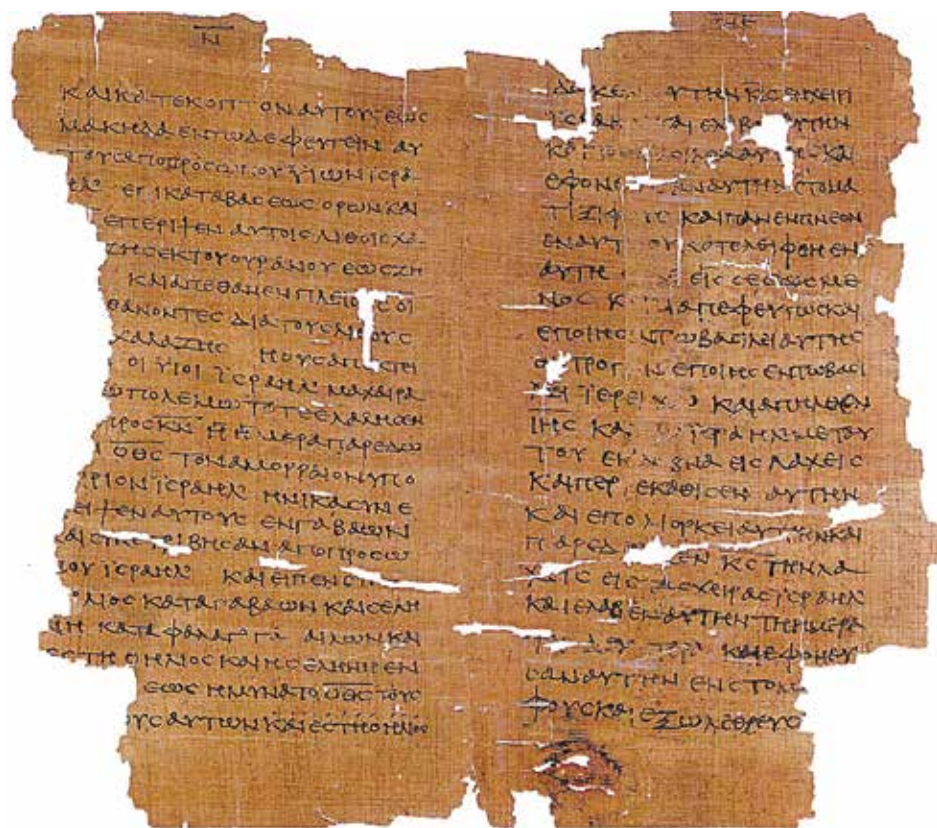 Ν
ΚΑΙΚΑΤΕΚΟΠΤΟΝΑΥΤΟΥϹΕΩϹ
ΜΑΚΗΔΑΕΝΤΩΔΕΦΕΥΓΕΙΝΑΥ
ΤΟΥϹΑΠΟΠΡΟϹΩΠΟΥΥΙΩΝΙϹΡΑ
ΗΛ ΕΠΙΚΑΤΑΒΑϹΕΩϹΟΡΩΝΚΑΙ
ΕΠΕΡΙΨΕΝΑΥΤΟΙϹΛΙΘΟΙϹΧΑ
ΖΗϹΕΚΤΟΥΟΥΡΑΝΟΥΕΩϹΖΗ
ΚΑΙΑΠΕΘΑΝΕΝΠΛΕΙΟΥϹΟΙ
ΘΑΝΟΝΤΕϹΔΙΑΤΟΥϹΛΙΘΟΥϹ
ΧΑΛΑΖΗϹ ΗΟΥϹΑΠΕΚΤΕΙ
ΟΙΥΙΟΙΙϹΡΑΗΛΜΑΧΑΙΡΑ
ΩΠΟΛΕΜΩΤΟΤΕΕΛΑΛΗϹΕΝ
ΠΡΟϹΚΝΗΗΜΕΡΑΠΑΡΕΔΩ
ΟΘϹΤΟΝΑΜΟΡΡΑΙΟΝΥΠΟ
ΡΙΟΝΙϹΡΑΗΛ ΗΝΙΚΑϹΥΝΕ
ΕΙΨΕΝΑΥΤΟΥϹΕΝΓΑΒΑΩΝΙ
ΑΙϹΥΝΕΤΡΙΒΗϹΑΝΑΠΟΠΡΟϹΩ
ΠΟΥΙϹΡΑΗΛ ΚΑΙΕΙΠΕΝ
ΛΙΟϹΚΑΤΑΓΑΒΑΩΝΚΑΙϹΕΛΗ
ΝΗΚΑΤΑΦΑΛΑΓΓΑΑΙΛΩΝΚΑΙ
ΕϹΤΗΟΗΛΙΟϹΚΑΙΗϹΕΛΗΝΗΕΝ
ΕΩϹΗΜΥΝΑΤΟΟΘϹΤΟΥϹ
ΟΥϹΑΥΤΩΝΚΑΙΕϹΤΗΟΗΛΙΟϹ
ΔΩΚΕ ΥΤΗΝΚϹΕΝΧΕΙΡΙ
ΙϹΡΑΕ ΑΙΕΛΑΒΟ ΥΤΗΝ
ΚΑΙΤΟΝΒΑϹΙΛΕΑΑΥΤΗϹΚΑΙ
ΕΦΟΝΕΥ ΑΝΑΥΤΗΝϹΤΟΜΑ
ΤΙΞΙΦΟΥϹΚΑΙΠΑΝΕΝΠΝΕΟΝ
ΕΝΑΥΤ ΟΥΚΑΤΕΛΕΙΦΘΗΕΝ
ΑΥΤΗ ΕΙϹϹΕϹΩϹΜΕ
ΝΟϹΚ ΙΑΠΕΦΕΥΓΩϹΚΑΙ
ΕΠΟΙΗϹ ΝΤΩΒΑϹΙΛΕΙΑΥΤΗϹ
ΟΝΤΡΟΠ ΝΕΠΟΙΗϹΕΝΤΩΒΑϹΙ
ΛΕΙΙΕΡΕΙΧΩ ΚΑΙΑΠΗΛΘΕΝ
ΙΗϹΚΑΙ ΙϹΡΑΗΛΜΕΤΟΥ
ΤΟΥΕΚΛΕΒΝΑΕΙϹΛΑΧΕΙϹ
ΚΑΙΠΕΡΙΕΚΑΘΙϹΕΝΑΥΤΗΝ
ΚΑΙΕΠΟΛΙΟΡΚΕΙΑΥΤΗΝΚΑΙ
ΠΑΡΕΔΩ ΚΕΝΚϹΤΗΝΛΑ
ΧΕΙϹΕΙϹΤΑϹΧΕΙΡΑϹΙϹΡΑΗΛ
ΚΑΙΕΛΑΒΕΝΑΥΤΗΝΤΗΗΜΕΡΑ
ΤΗΔΕΥΤΕΡΑΚΑΙΕΦΟΝΕΥ
ϹΑΝΑΥΤΗΝΕΝϹΤΟΜΑ
ΦΟΥϹΚΑΙΕΞΩΛΕΘΡΕΥϹ